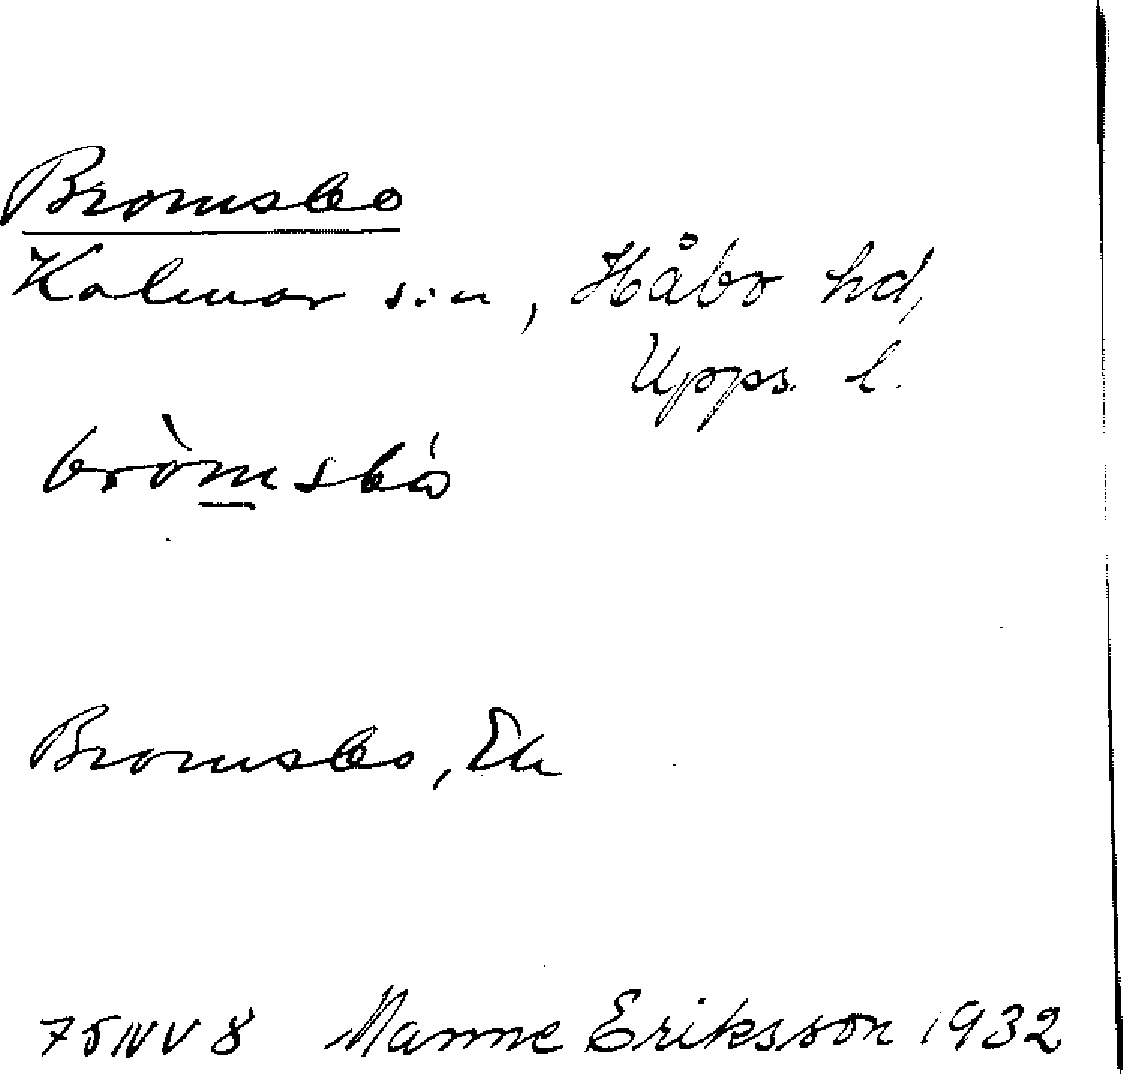 Bromsbo
Kalmar sn, Håbo hd,
Upps. l.
bròmsbó
Bromsbo, Ek
75 NV 8 Manne Eriksson 1932